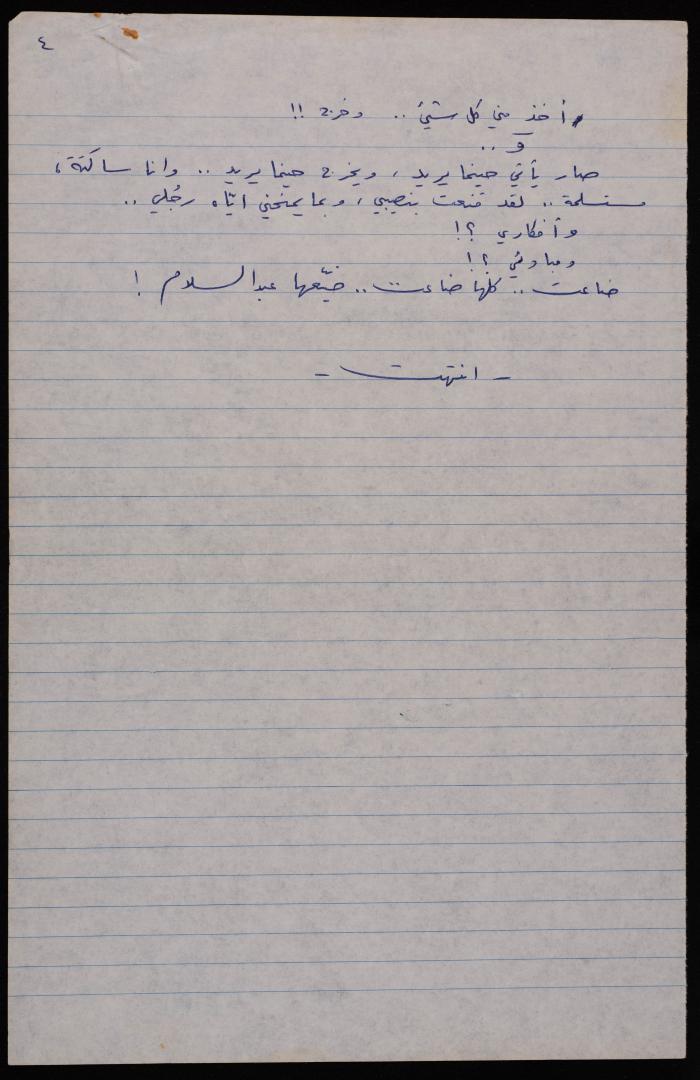 ٤
أخذ مني كل شيئ .. وخرج !!
و ..
صار يأتي حينما يريد ، ويخرج حينما يريد .. وانا ساكتة ،
مستسلمة .. لقد قنعت بنصيبي ، وبما يمنحني ايّاه رجُلي ..
وأفكاري ؟!
ومبادئي ؟!
ضاعت .. كلها ضاعت .. ضيّعها عبدالسلام !
- انتهت -